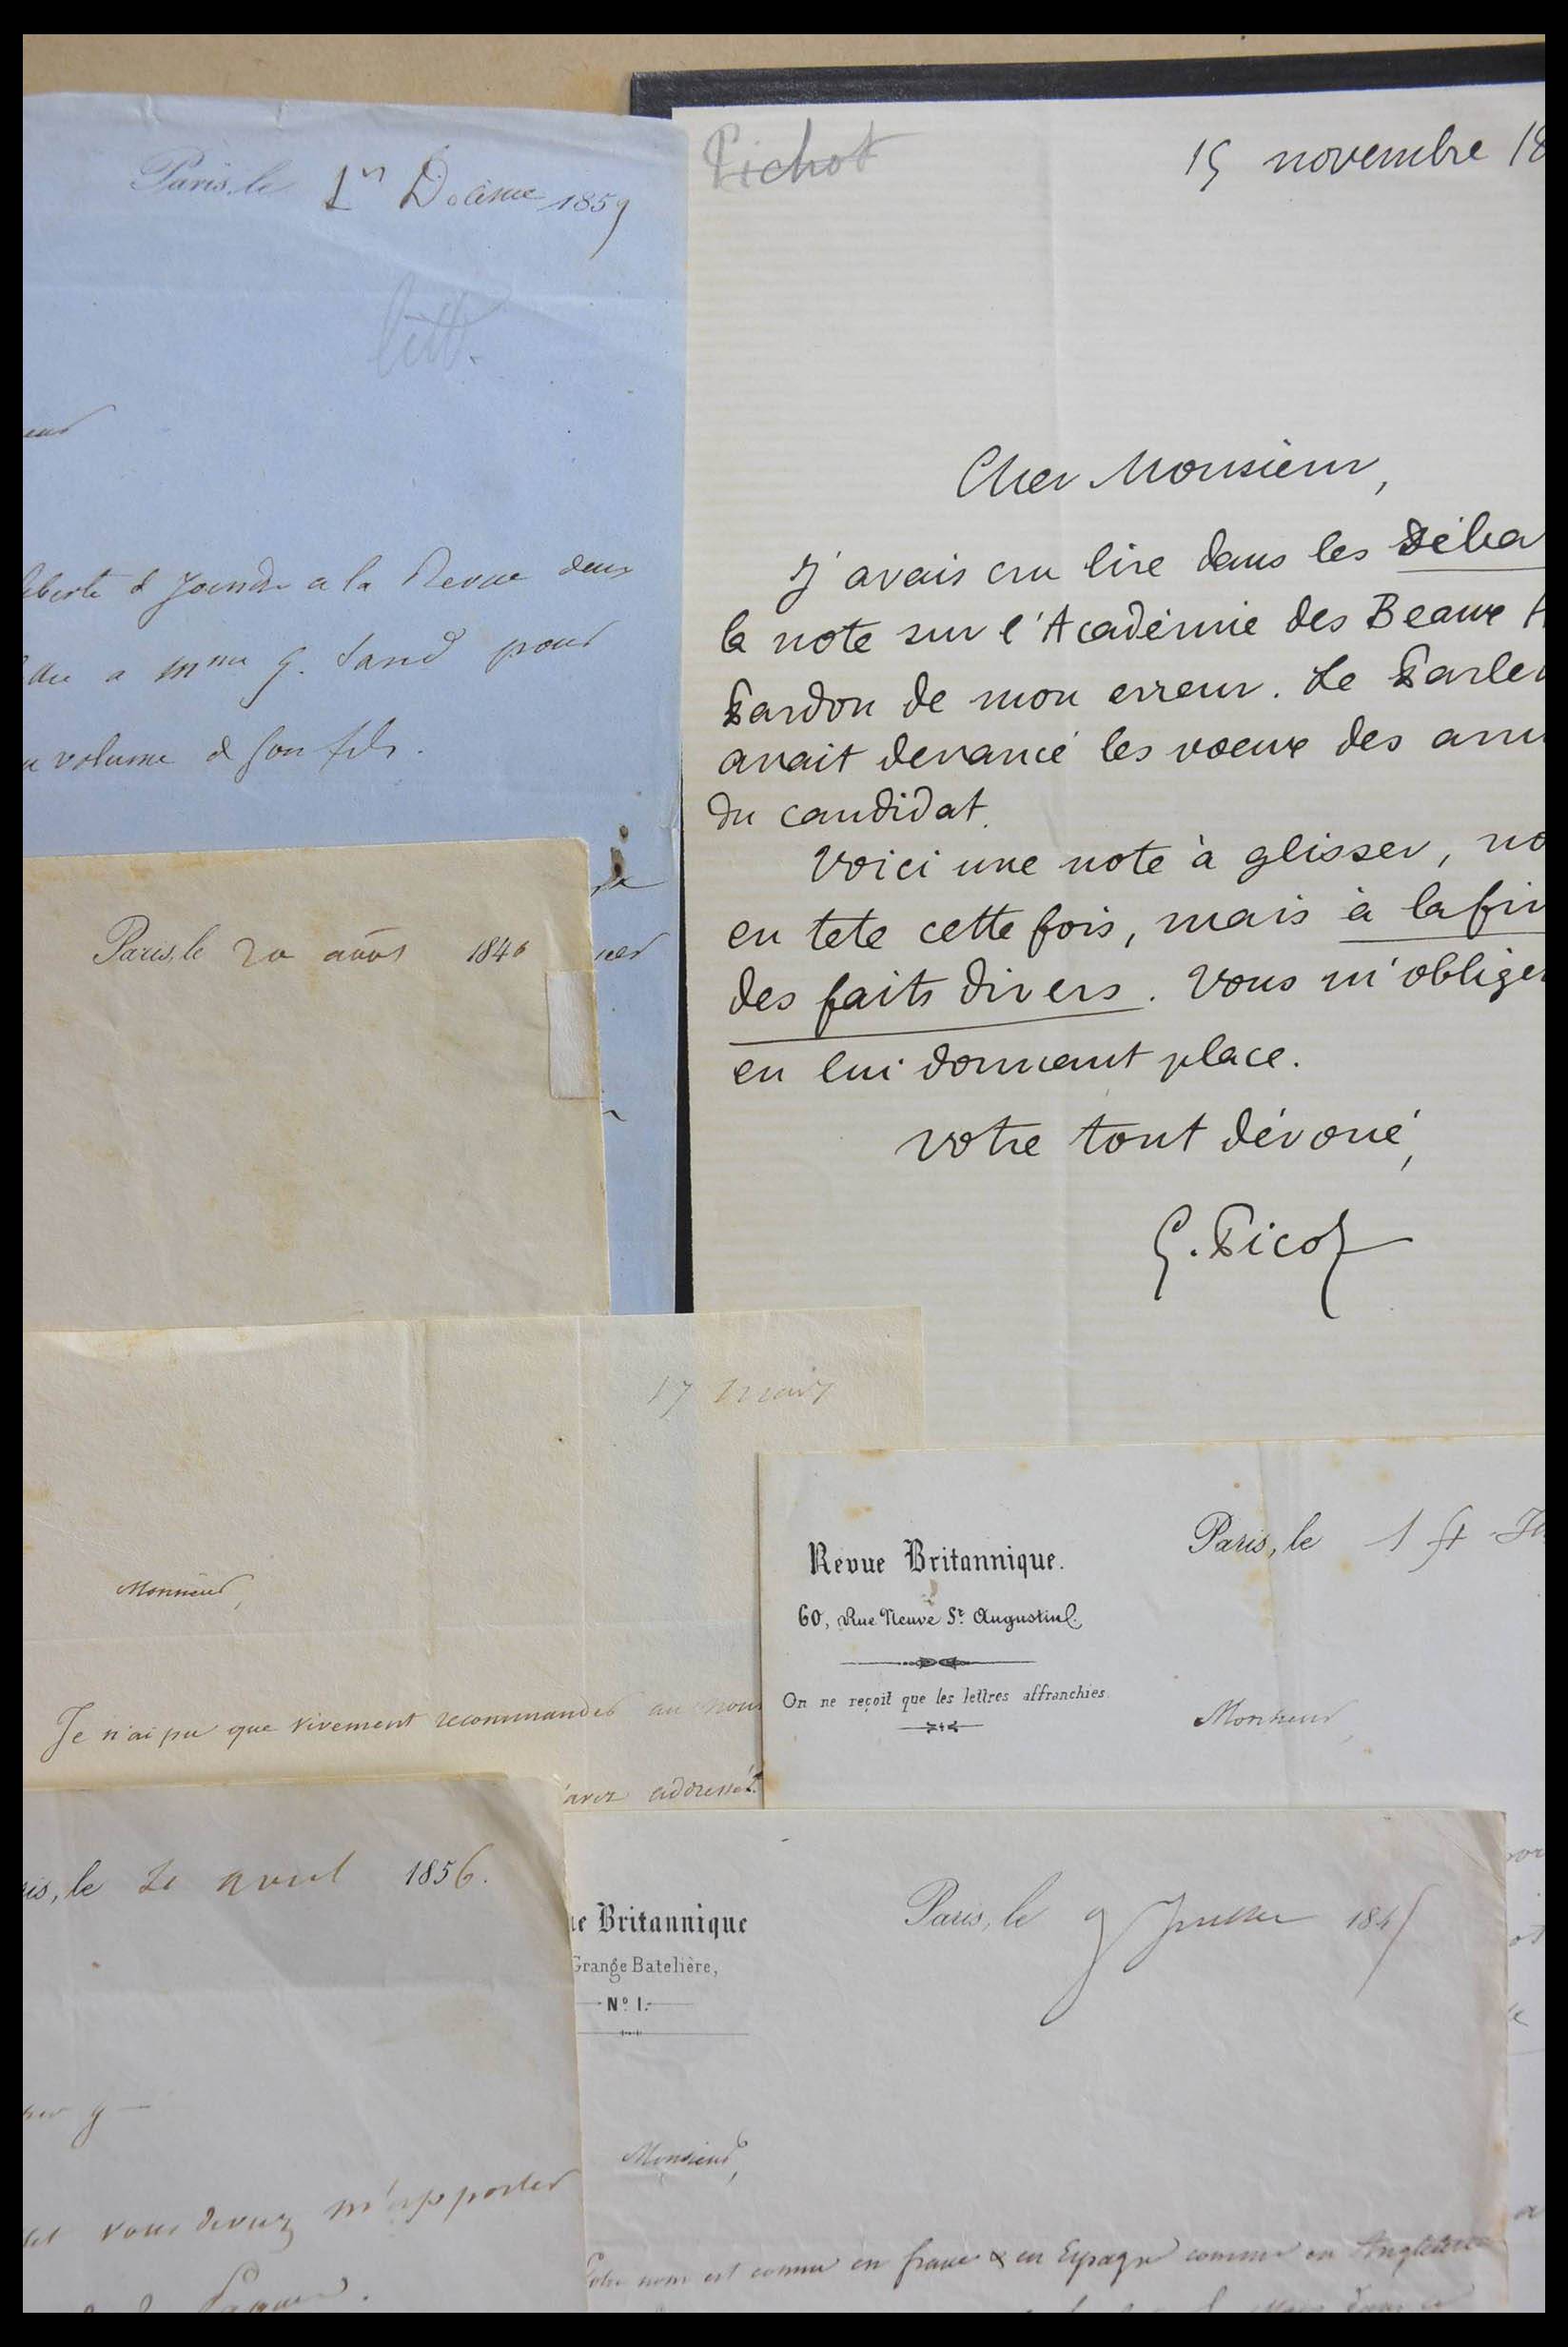 Paris, le 1er Décembre 1859
litt.
liberté d joindre a la Revue deux
a Mme G. Sand pour
volume d son fils.
Pichot
15 novembre 18
Cher Monsieur,
J'avais cru lire dans les Déba
la note sur l'Académie des Beaux A
Pardon de mon erreur. Le Parlem
avait devancé les voeux des ami
du candidat.
Voici une note à glisser, no
en tete cette fois, mais à la fin
des faits divers. Vous m'oblige
en lui donnant place.
votre tout dévoué,
G. Picot
Paris, le 20 août 1846
17 mars
Monsieur,
Je n'ai pu que vivement recommander au
avez addressée
Revue Britannique.
60, Rue Neuve St. Augustin.
On ne reçoit que les lettres affranchies
Paris, le 14
Monsieur,
is, le 21 avril 1856.
vous devez m'apporter
ue Britannique
Grange Batelière,
Nº 1.
Paris, le 9 Juillet 184
Monsieur,
Votre nom est connu en france & en Espagne comme en Angleterre